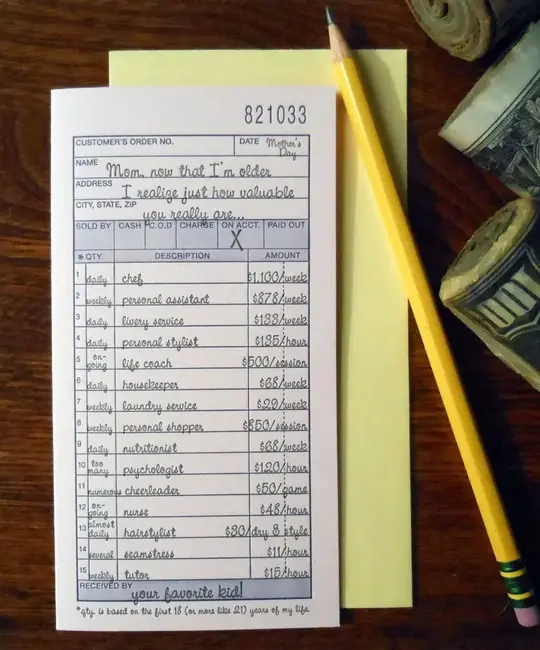 821033
CUSTOMER'S ORDER NO. DATE Mother's Day
NAME Mom, now that I'm older
ADDRESS I realize just how valuable
CITY, STATE, ZIP you really are...
SOLD BY CASH C.O.D CHARGE ON ACCT. PAID OUT
X
* QTY. DESCRIPTION AMOUNT
1 daily chef $1,100/week
2 weekly personal assistant $878/week
3 daily livery service $133/week
4 daily personal stylist $135/hour
5 on-going life coach $500/session
6 daily housekeeper $68/week
7 weekly laundry service $29/week
8 weekly personal shopper $850/session
9 daily nutritionist $68/week
10 too many psychologist $120/hour
11 numerous cheerleader $50/game
12 on-going nurse $48/hour
13 almost daily hairstylist $30/dry & style
14 several seamstress $11/hour
15 weekly tutor $15/hour
RECEIVED BY your favorite kid!
*qty. is based on the first 18 (or more like 21) years of my life.